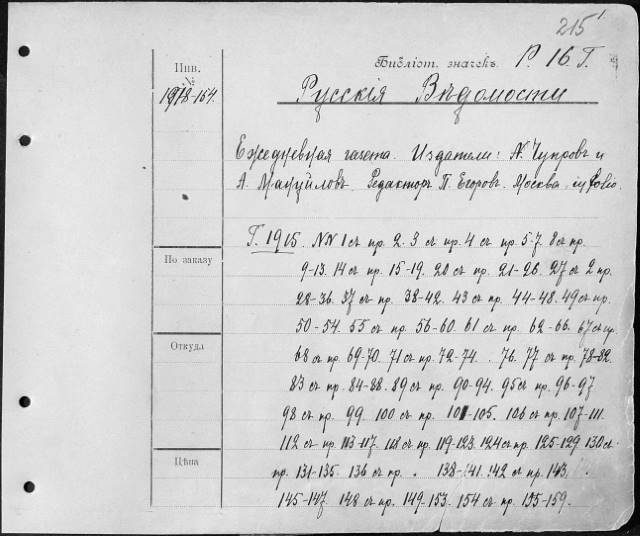 215
Библіот. значекъ Р. 16 Г.
Инв.
№
1918-154.
Русскія Вѣдомости
Ежедневная газета. Издатели: А. Чупровъ и
А. Мануйловъ. Редакторъ П. Егоровъ. Москва. in folio.
Г. 1915. NN 1 съ пр. 2. 3 съ пр. 4 съ пр. 5-7. 8 съ пр.
9-13. 14 съ пр. 15-19. 20 съ пр. 21-26. 27 съ 2 пр.
28-36. 37 съ пр. 38-42. 43 съ пр. 44-48. 49 съ пр.
50-54. 55 съ пр. 56-60. 61 съ пр. 62-66. 67 съ пр.
68 съ пр. 69-70. 71 съ пр. 72-74. 76. 77 съ пр. 78-82.
83 съ пр. 84-88. 89 съ пр. 90-94. 95 съ пр. 96-97
98 съ пр. 99. 100 съ пр. 101-105. 106 съ пр. 107-111.
112 съ пр. 113-117. 118 съ пр. 119-123. 124 съ пр. 125-129. 130 съ
пр. 131-135. 136 съ пр. . 138-141. 142 съ пр. 143.
145-147. 148 съ пр. 149-153. 154 съ пр. 155-159.
По заказу
Откуда
Цѣна